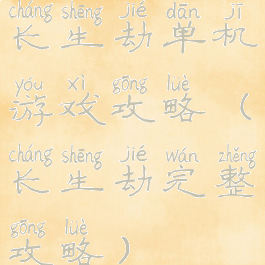 cháng shēng jié dān jī
长生劫单机
yóu xì gōng lüè
游戏攻略（
cháng shēng jié wán zhěng
长生劫完整
gōng lüè
攻略）